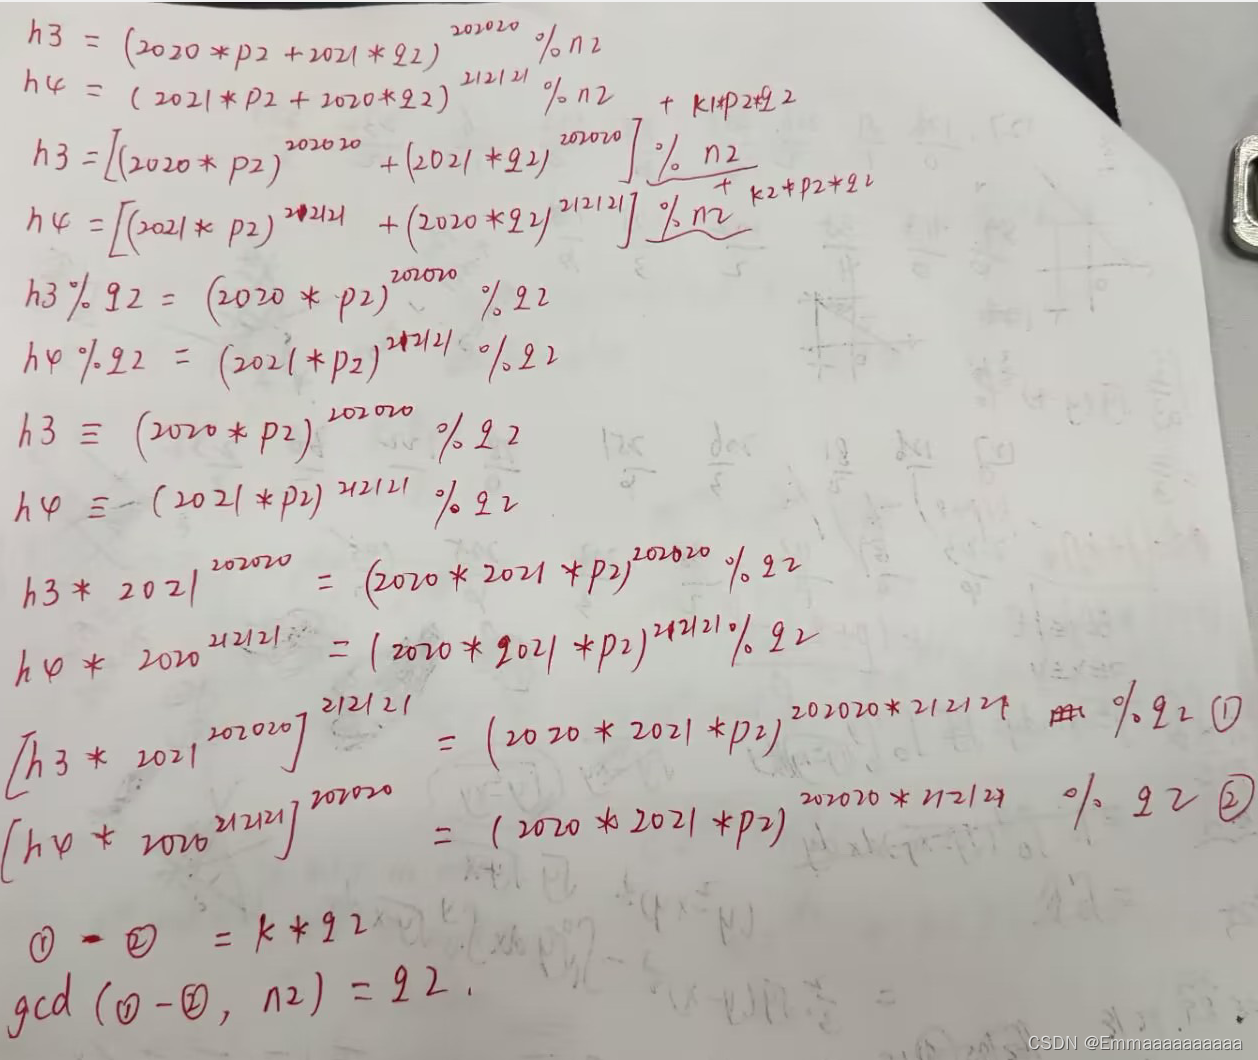 h3 = (2020 * p2 + 2021 * q2)^202020 % n2
h4 = (2021 * p2 + 2020 * q2)^212121 % n2
+ k1*p2*q2
h3 = [(2020 * p2)^202020 + (2021 * q2)^202020] % n2
+ k2*p2*q2
h4 = [(2021 * p2)^212121 + (2020 * q2)^212121] % n2
h3 % q2 = (2020 * p2)^202020 % q2
h4 % q2 = (2021 * p2)^212121 % q2
h3 ≡ (2020 * p2)^202020 % q2
h4 ≡ (2021 * p2)^212121 % q2
h3 * 2021^202020 = (2020 * 2021 * p2)^202020 % q2
h4 * 2020^212121 = (2020 * 2021 * p2)^212121 % q2
[h3 * 2021^202020]^212121 = (2020 * 2021 * p2)^202020*212121 % q2 ①
[h4 * 2020^212121]^202020 = (2020 * 2021 * p2)^202020*212121 % q2 ②
① - ② = k * q2
gcd (① - ②, n2) = q2.
CSDN @Emmaaaaaaaaaa